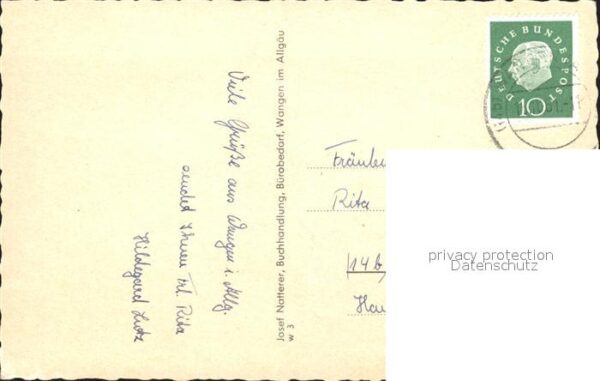 Viele Grüße aus Wangen i. Allg.
sendet Ihnen Frl. Rita
Hildegard Lutz
Josef Natterer, Buchhandlung, Bürobedarf, Wangen im Allgäu
w 3
DEUTSCHE BUNDESPOST
10
Fräulein
Rita
14b
privacy protection
Datenschutz